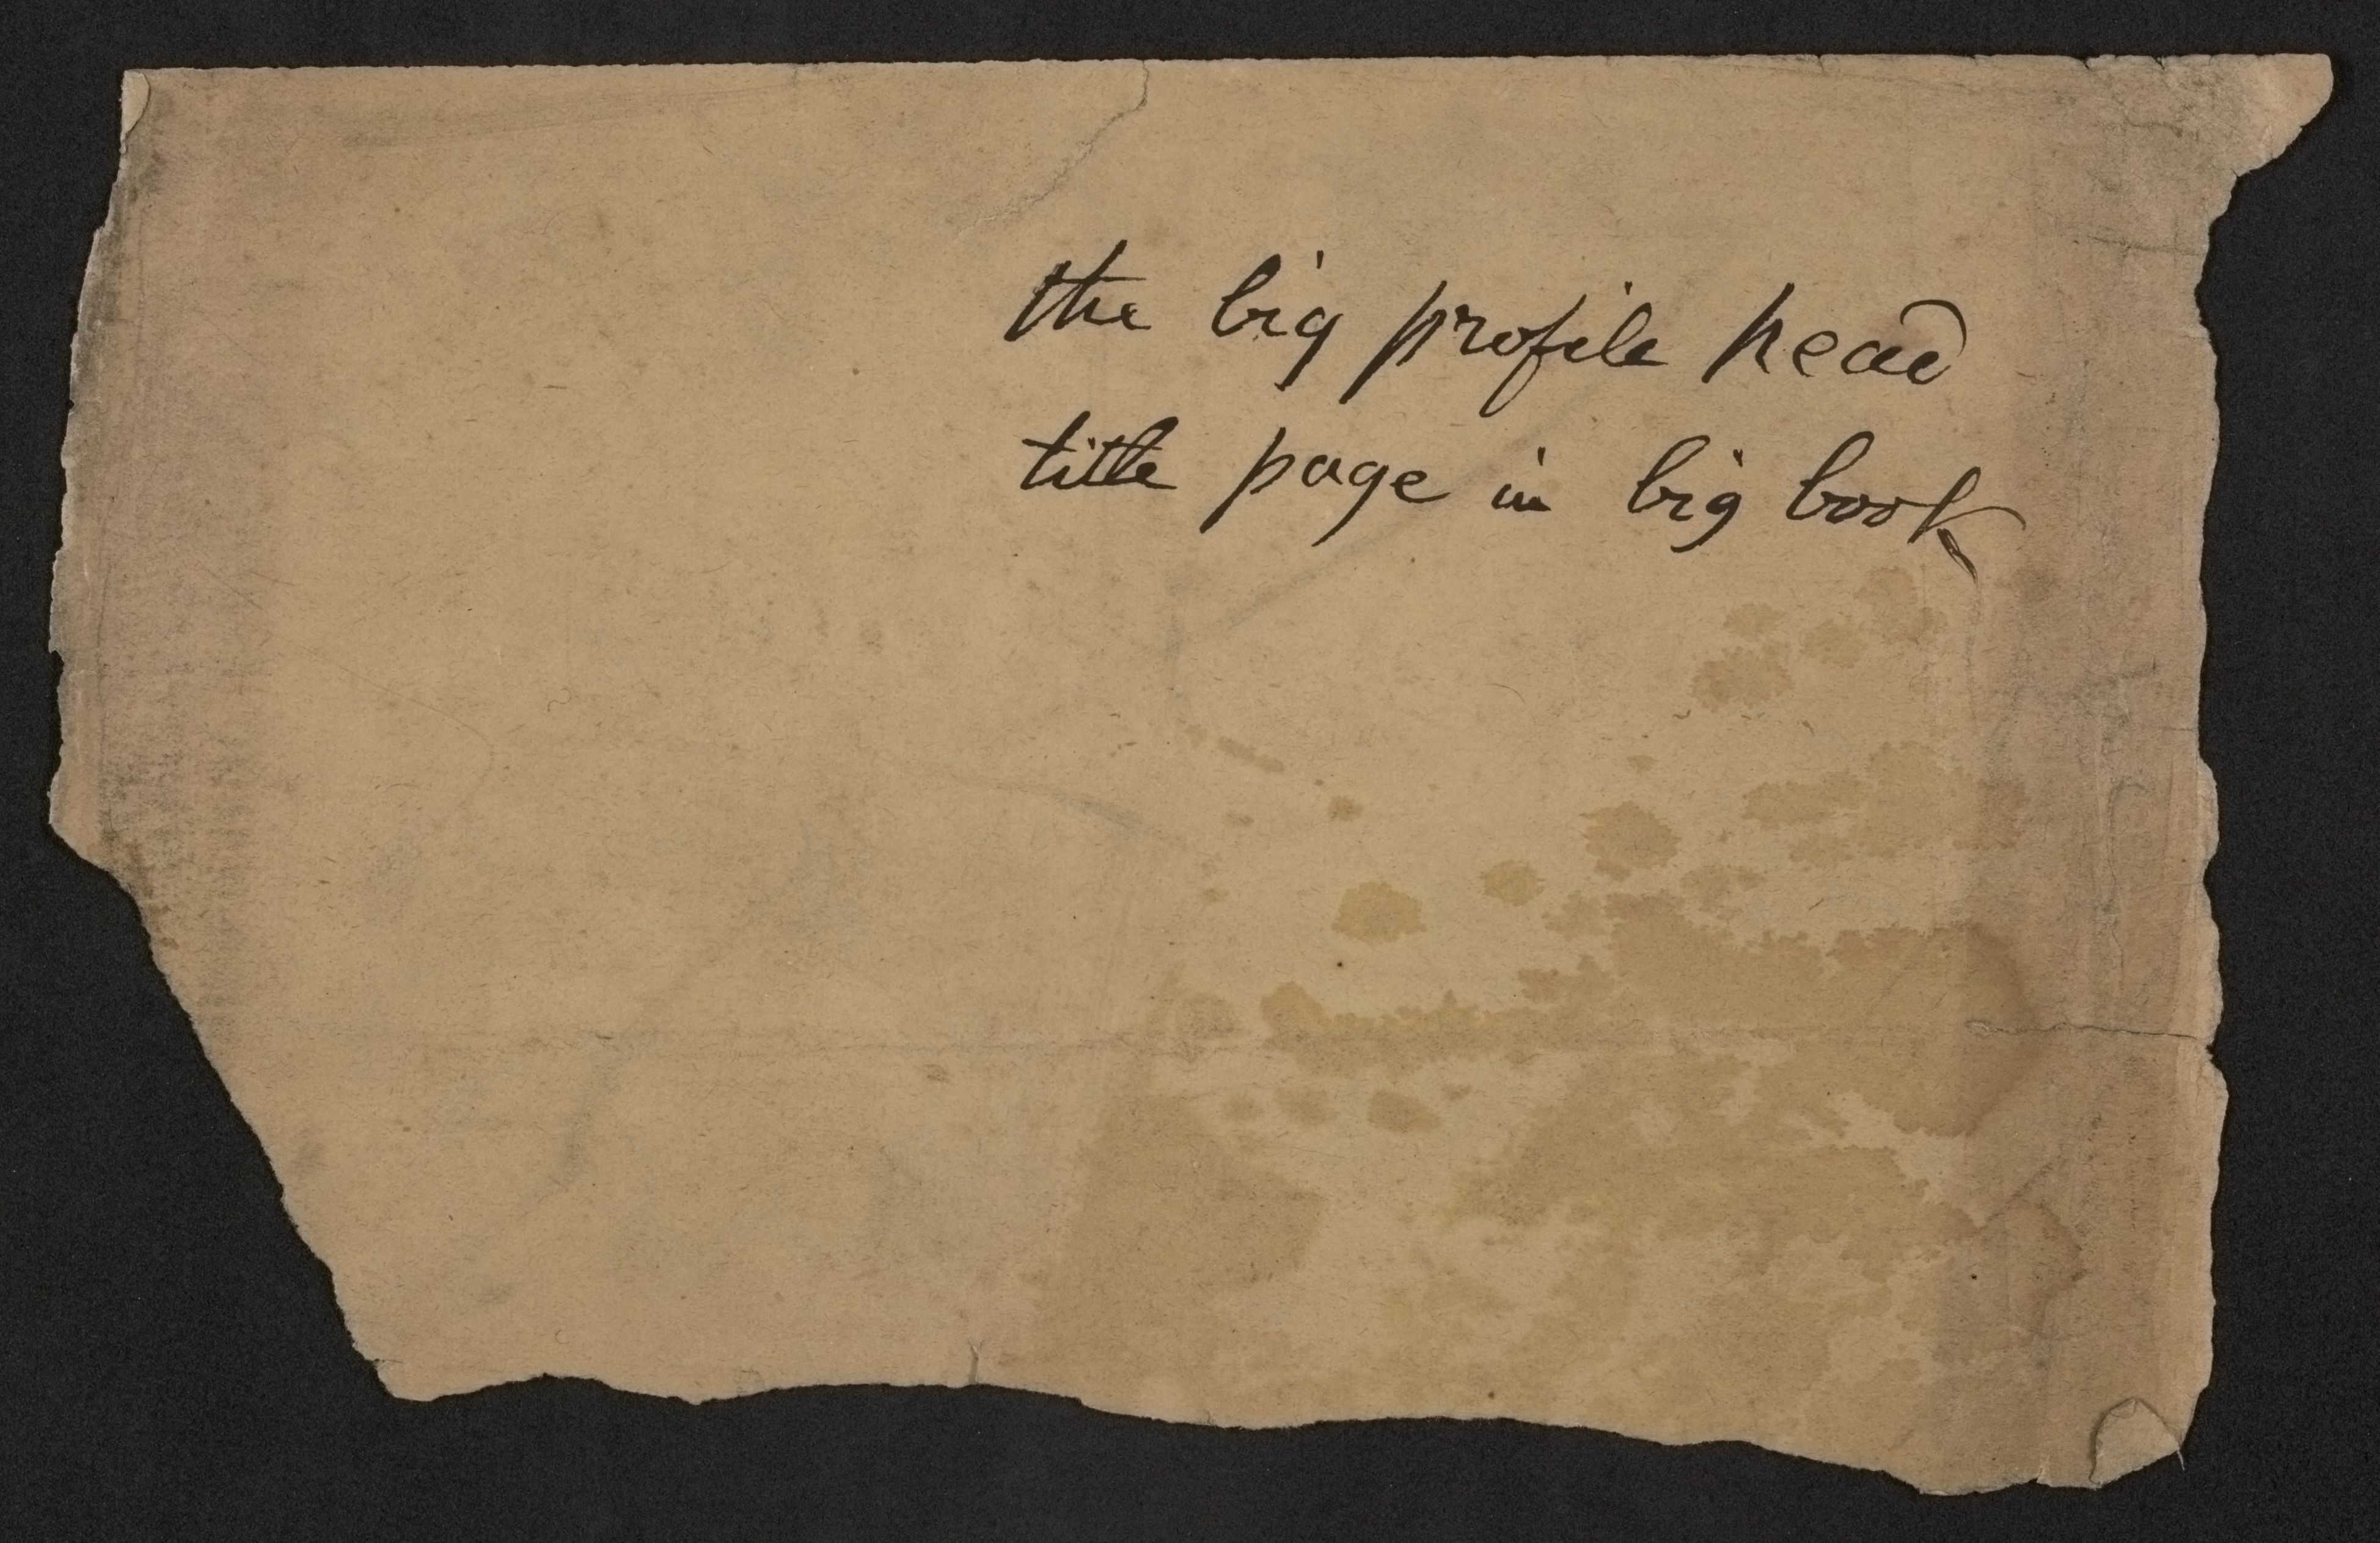 the big profile head
title page in big book